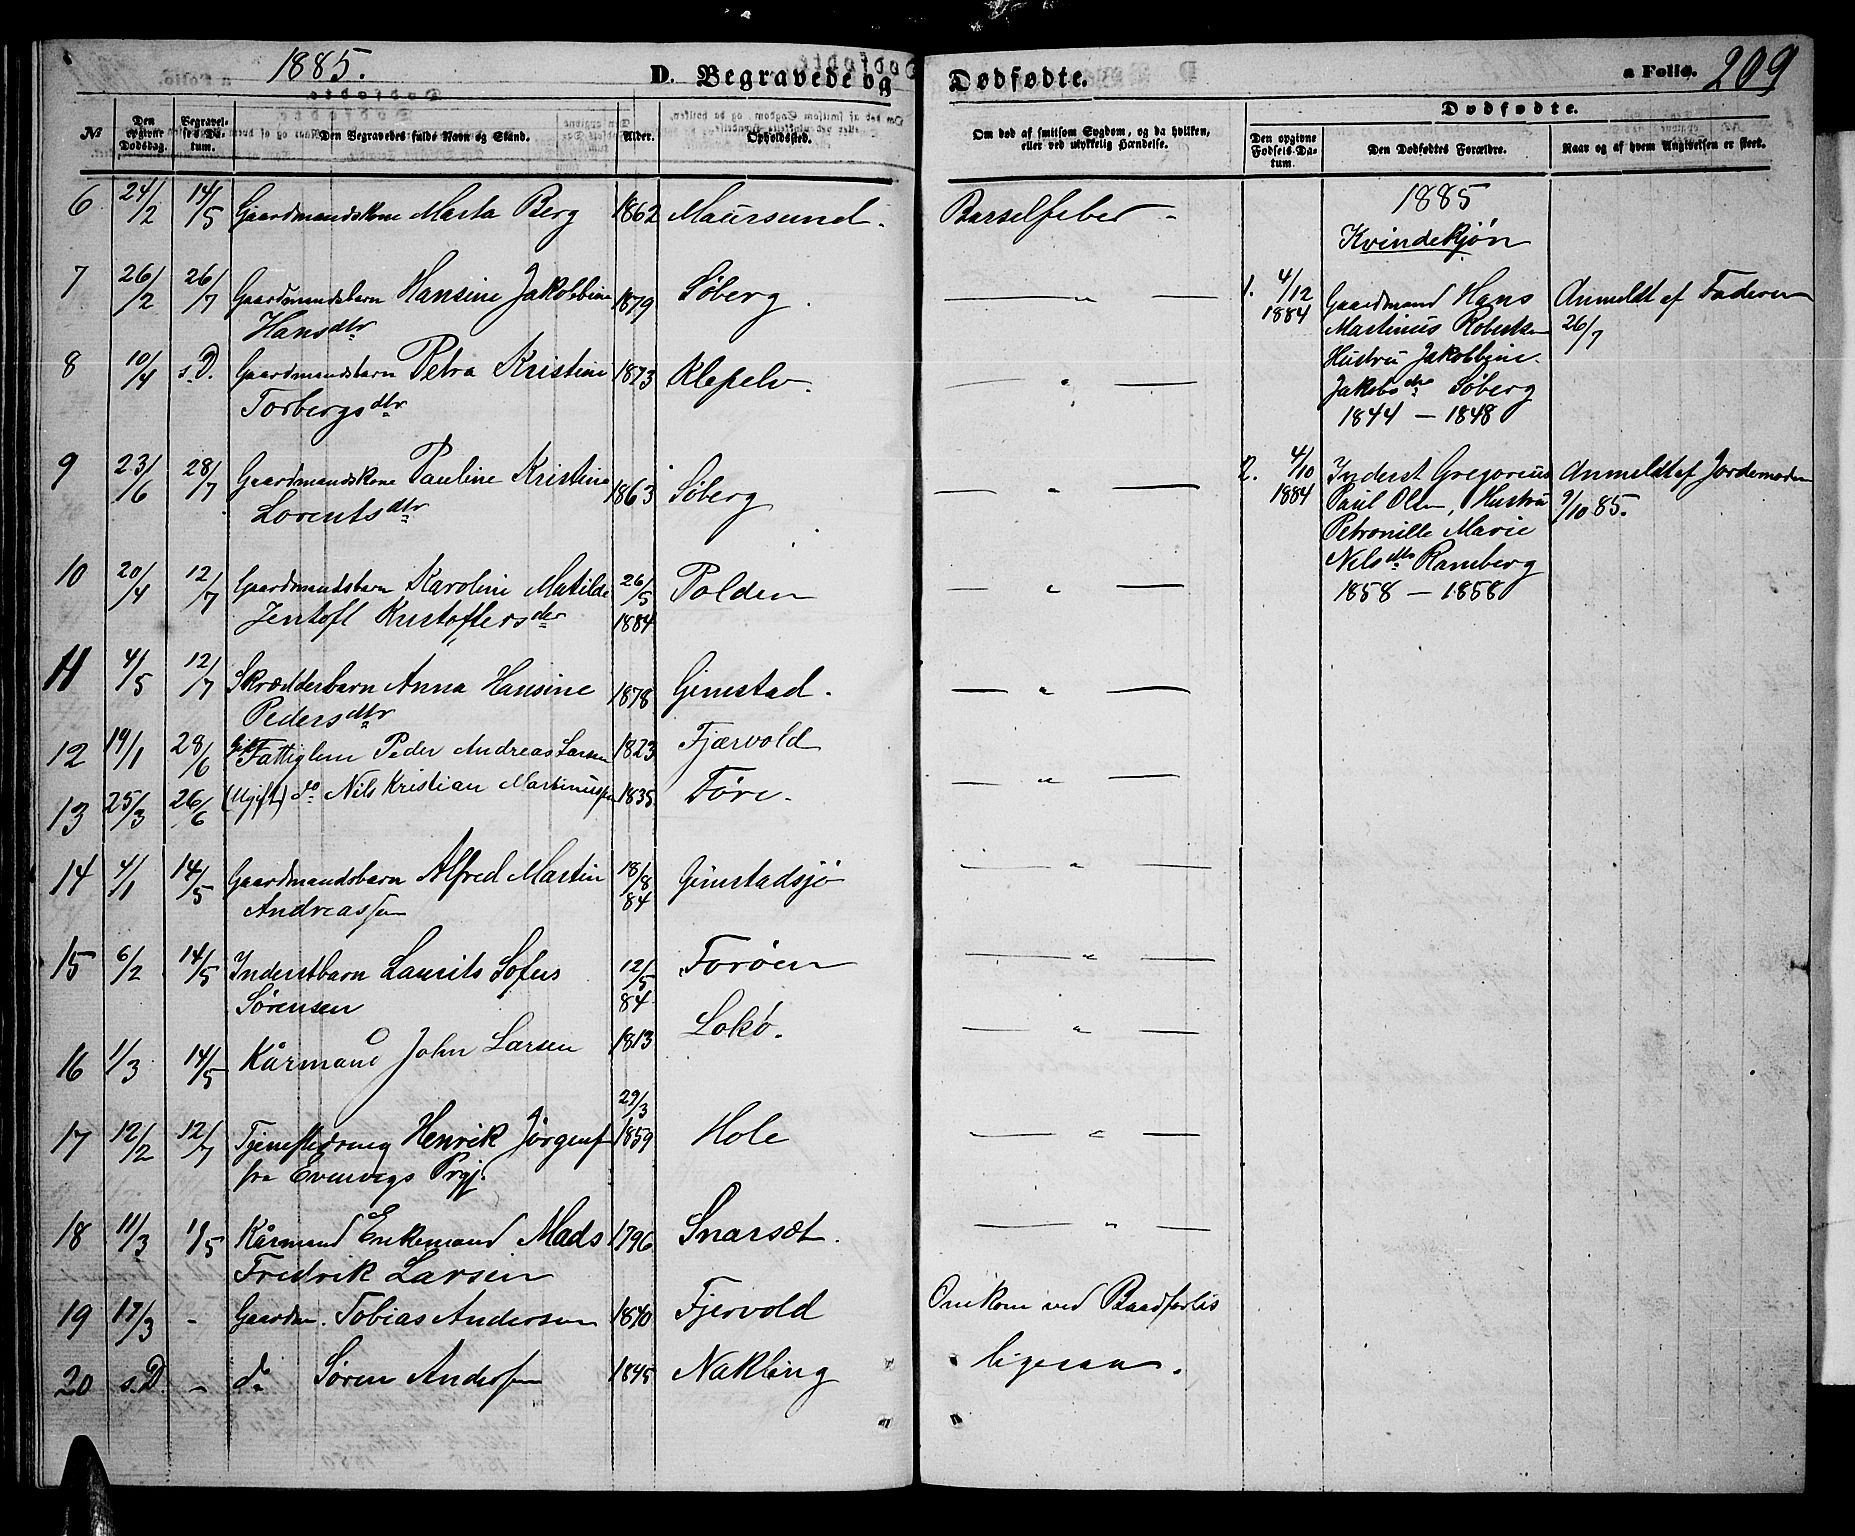 1885.
D. Begravede og Dødfødte.
a Folio. 209
Dødfødte.
№
Den opgivne Dødsdag.
Begravelses-Datum.
Den Begravedes fulde Navn og Stand.
Alder.
Opholdssted.
Om død af smitsom Sygdom, og da hvilken, eller ved ulykkelig Hændelse.
Den opgivne Fødsels-Datum.
Den Dødfødtes Forældre.
Naar og af hvem Angivelsen er skeet.
6 24/2 14/5 Gaardmandskone Marta Berg 1862 Maursund. Barselfeber -
7 26/2 26/7 Gaardmandsbarn Hansine Jakobbine 1879 Søberg. — " —
Hansdtr
8 10/4 s.D. Gaardmandsbarn Petra Kristine 1873 Klepelv. — " —
Torbergsdtr
9 23/6 28/7 Gaardmandskone Pauline Kristina 1863 Søberg — " —
Lorentsdtr
10 20/4 12/7 Gaardmandsbarn Karoline Matilde 26/5 1884 Polden — " —
Jentoft Kristoffersdtr
11 4/5 12/7 Skrædderbarn Anna Hansine 1878 Gimstad. — " —
Pedersdtr
12 19/1 28/6 Gift Fattiglem Peder Andreas Larsen 1823 Fjærvold
13 25/3 26/6 (Ugift) do Nils Kristian Martinussen 1835 Føre. — " —
14 4/1 14/5 Gaardmandsbarn Alfred Martin 18/8 84 Gimstadsjø — " —
Andreassen
15 6/2 14/5 Inderstbarn Laurits Sofus 12/5 84 Forøen — " —
Sørensen
16 1/3 14/5 Kårmand John Larsen 1813 Lokø. — " —
17 12/2 12/7 Tjenestedreng Henrik Jörgens 29/3 1859 Hole — " —
fra Evenvigs Prgj.
18 11/3 1/5 Kårmand Enkemand Mads 1796 Snarsæt. — " —
Fredrik Larsen
19 17/3 - Gaardm. Tobias Andersen 1840 Fjervold Omkom ved Baadforlis
20 s.D. - do Søren Andersen 1845 Nakling ligesaa.
1885
Kvindekjøn
1. 4/12 1884 Gaardmand Hans Anmeldt af Faderen
Martinus Robertsen 26/7
Hustru Jakobbine
Jakobsdtr Søberg
1844 — 1848
2. 4/10 1884 Inderst Gregorius Anmeldt af Jordemoderen
Paul Olsen, Hustru 9/10 85.
Petronille Marie
Nilsdtr Ramberg
1858 — 1858